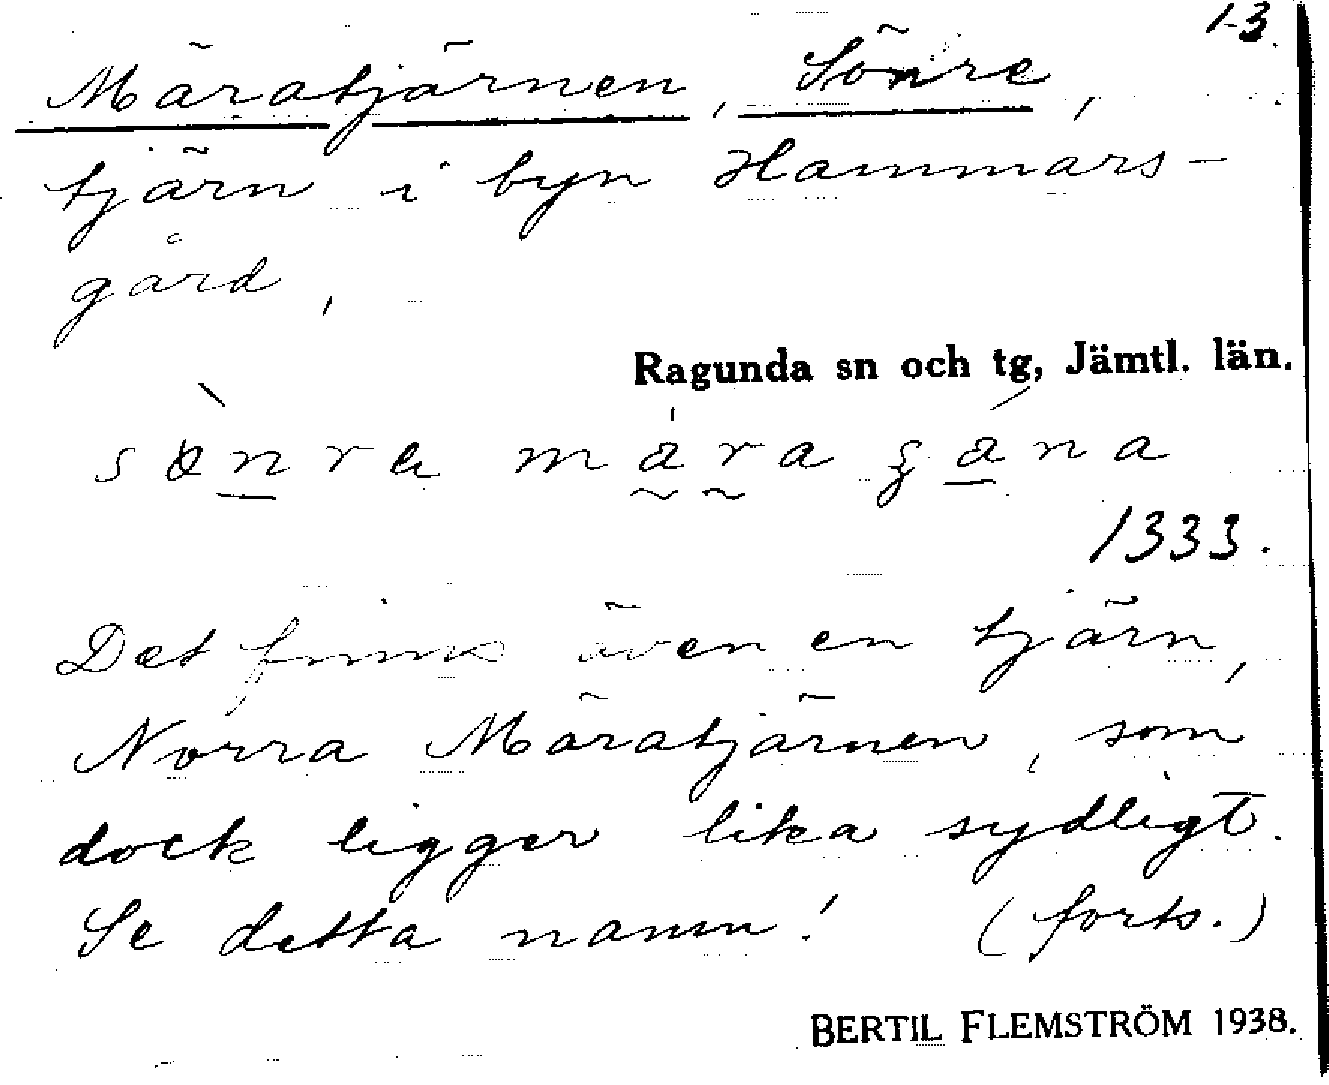 13.
Märatjärnen, Sönre,
tjärn i byn Hammars-
gård,
Ragunda sn och tg, Jämtl. län.
1333.
Det finns även en tjärn,
Norra Märatjärnen, som
dock ligger lika sydligt.
Se detta namn! (forts.)
BERTIL FLEMSTRÖM 1938.